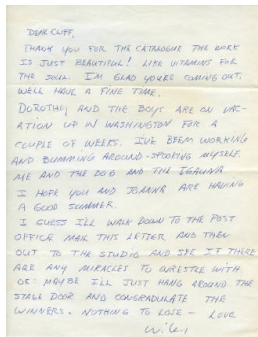 DEAR CLIFF,
THANK YOU FOR THE CATALOGUE THE WORK
IS JUST BEAUTIFUL! LIKE VITAMINS FOR
THE SOUL. I'M GLAD YOURE COMING OUT,
WELL HAVE A FINE TIME.
DOROTHY, AND THE BOYS ARE ON VAC-
ATION UP IN WASHINGTON FOR A
COUPLE OF WEEKS. I'VE BEEM WORKING
AND BUMMING AROUND - SPOOKING MYSELF.
ME AND THE DOG AND THE IGAUNA
I HOPE YOU AND JOANNA ARE HAVING
A GOOD SUMMER.
I GUESS ILL WALK DOWN TO THE POST
OFFICE MAIL THIS LETTER AND THEN
OUT TO THE STUDIO AND SEE IF THERE
ARE ANY MIRACLES TO WRESTLE WITH
OR MAYBE I'LL JUST HANG AROUND THE
STAGE DOOR AND CONGRADULATE THE
WINNERS. NOTHING TO LOSE - LOVE